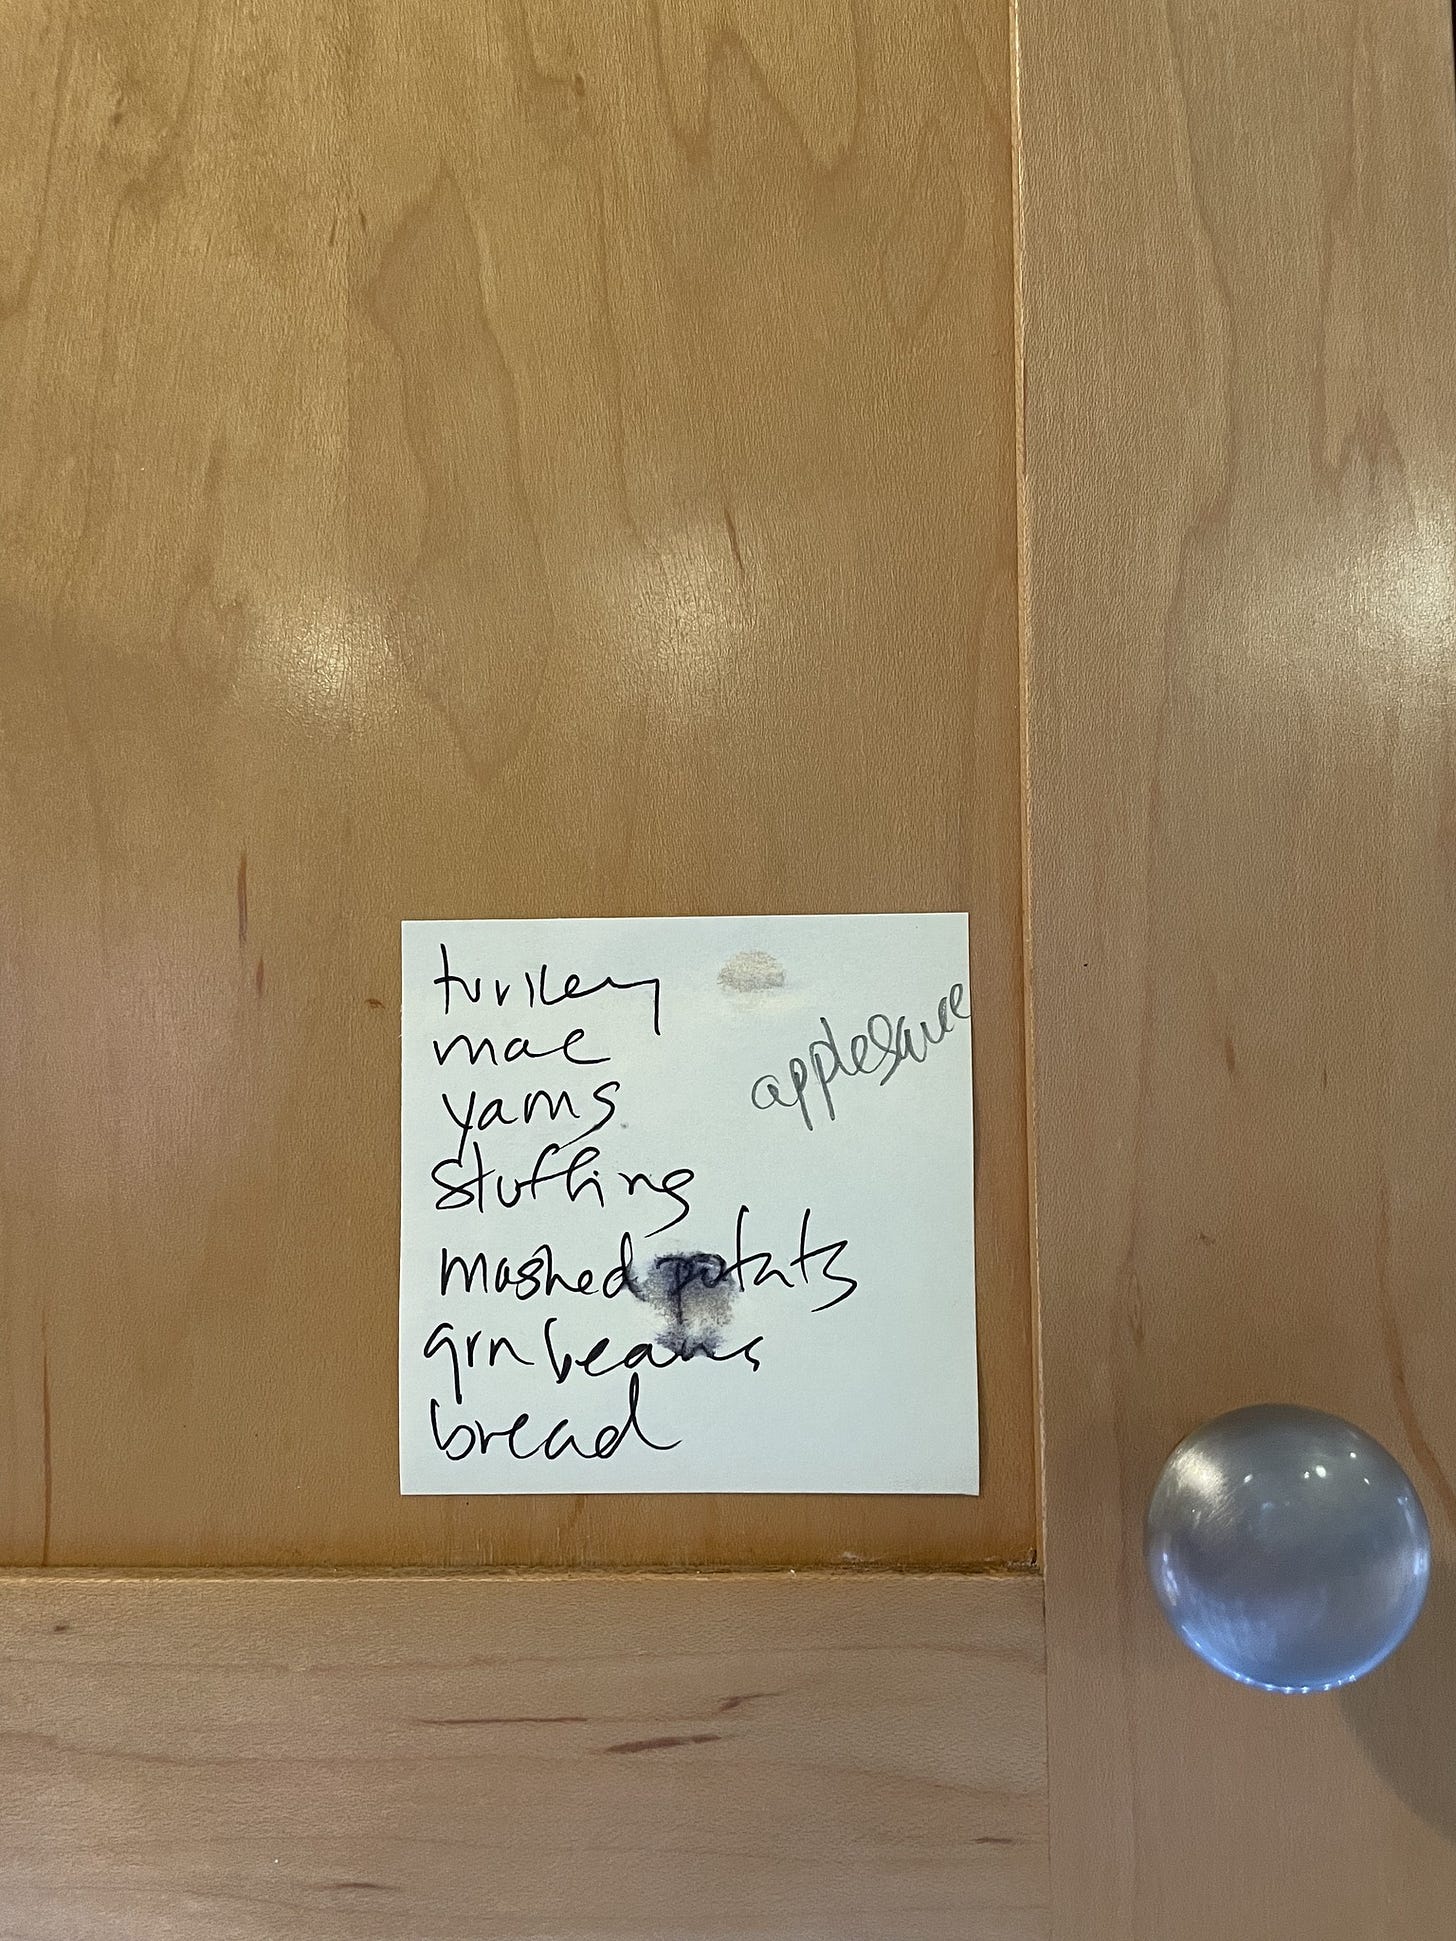 turkey
mac
yams
stuffing
mashed potats
grn beans
bread
applesauce